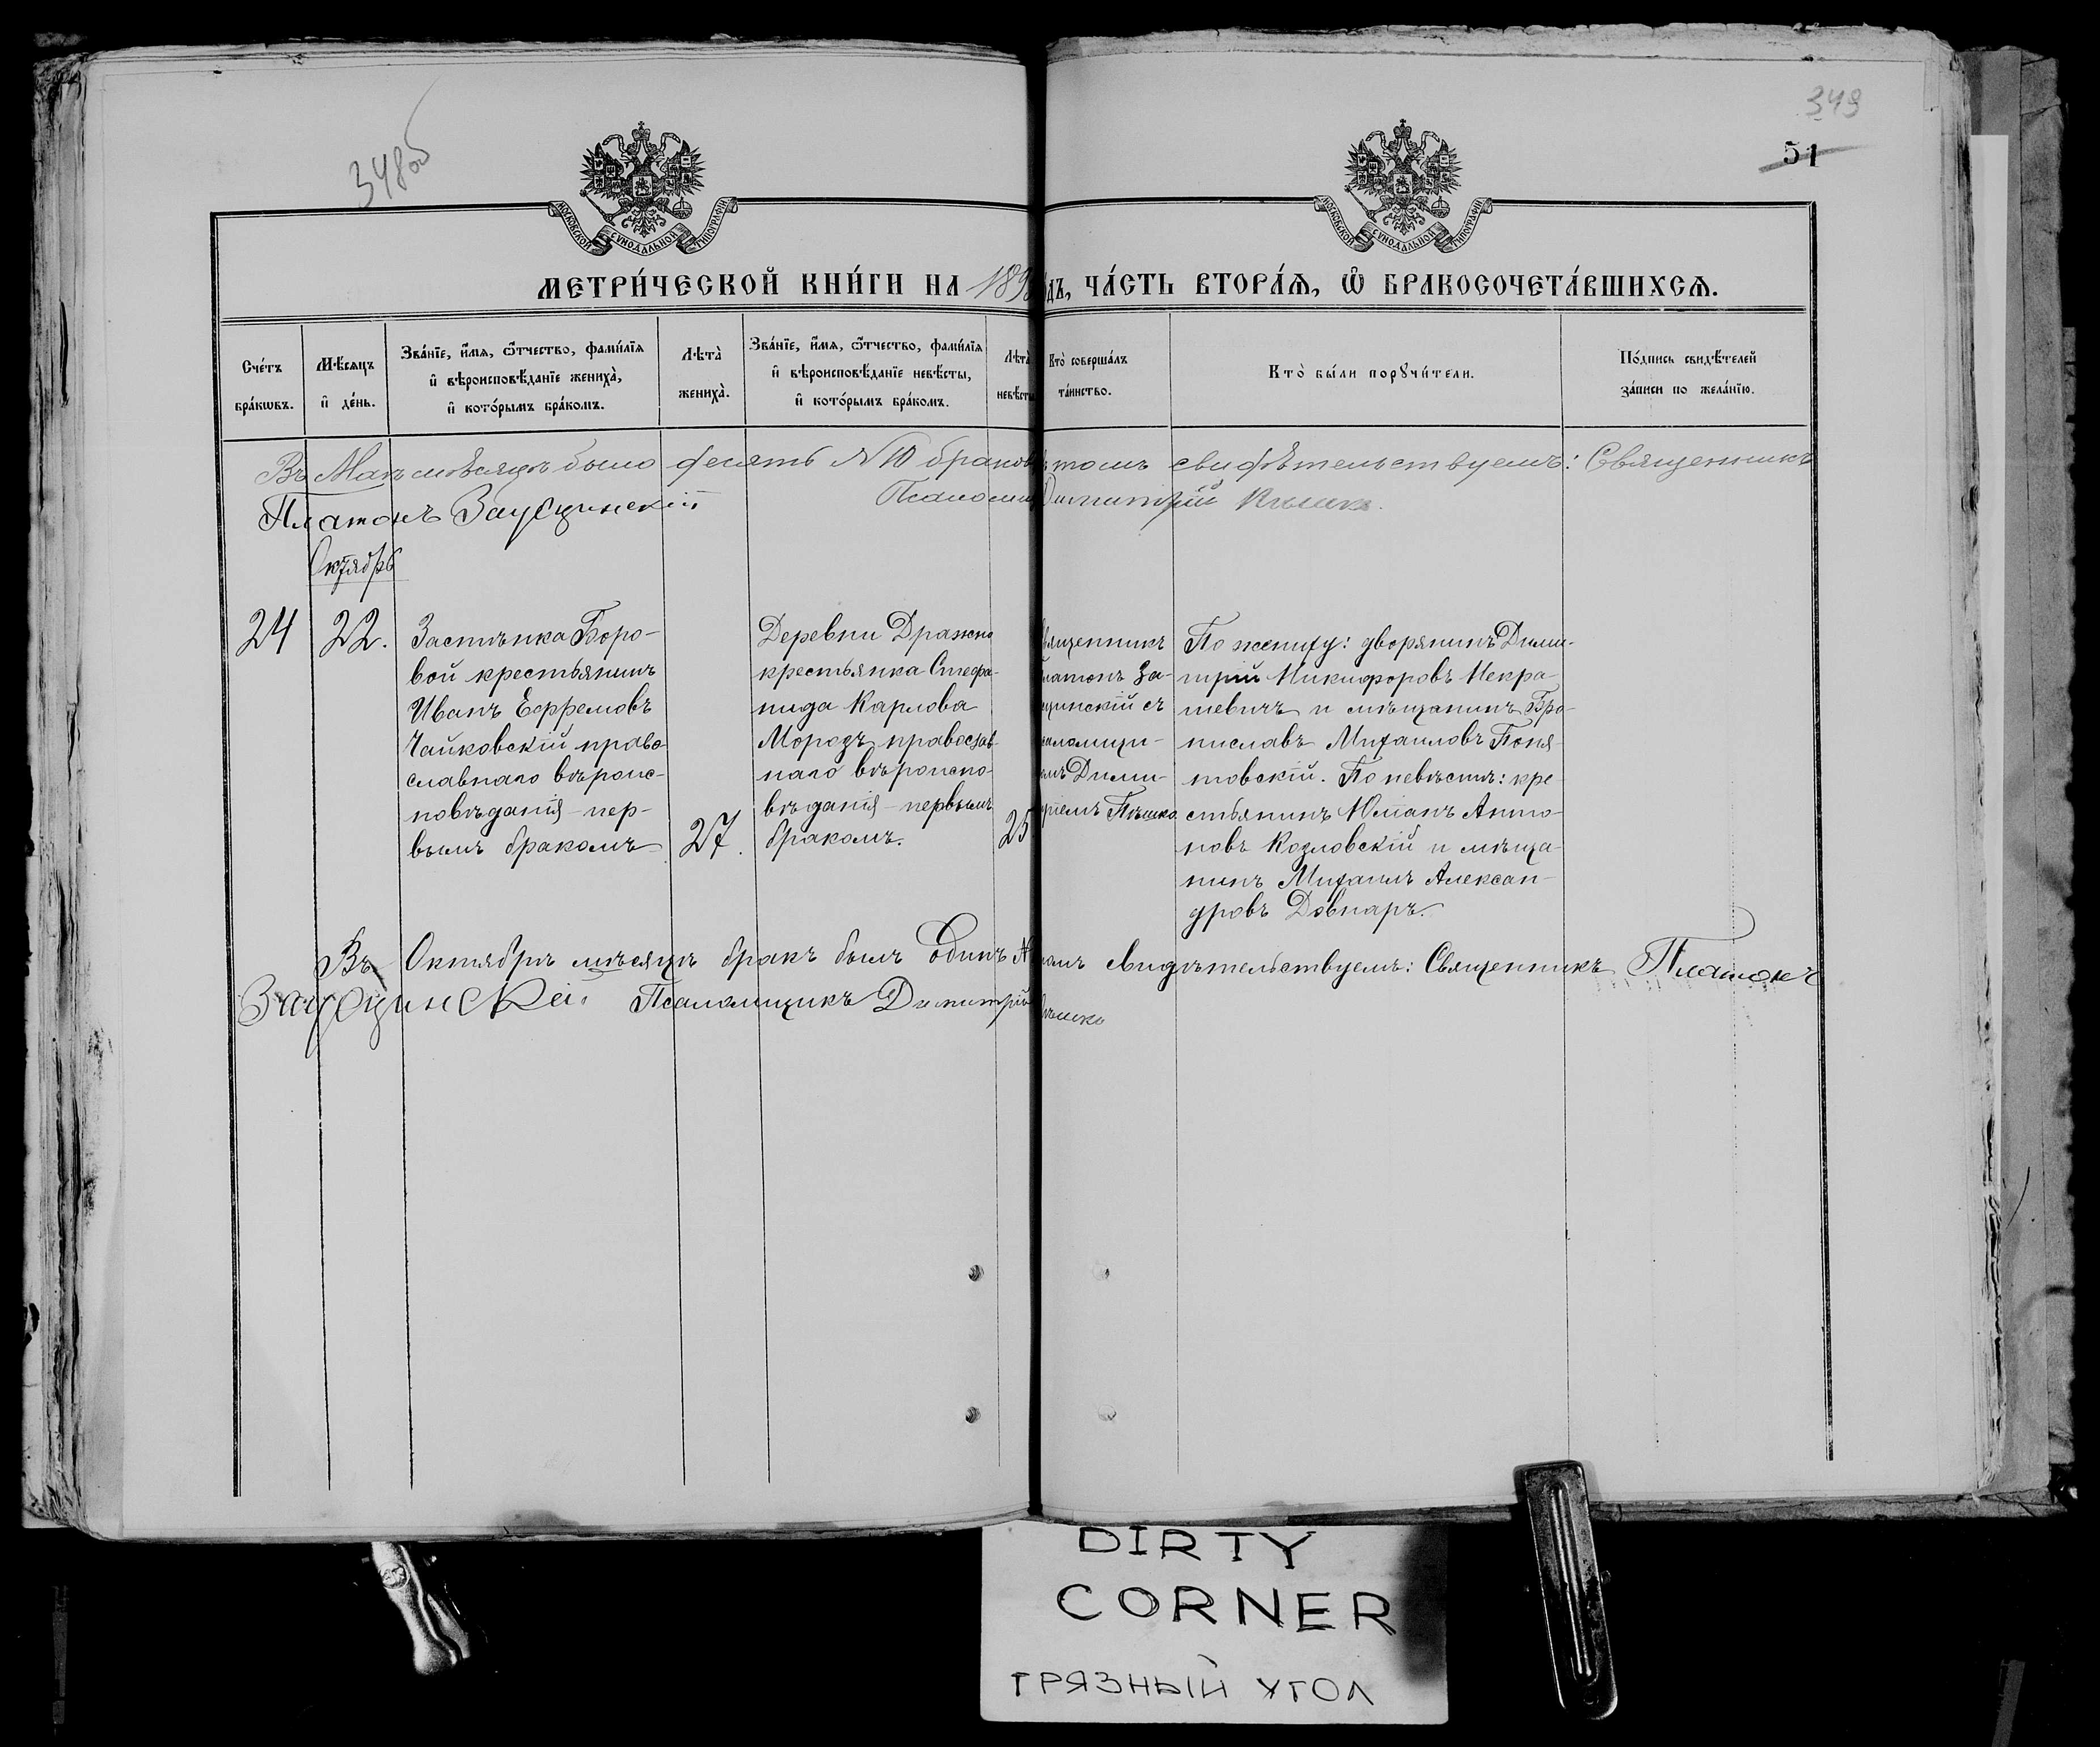 348об
349
51
МОСКОВСКОЙ СѴНОДАЛЬНОЙ ТИПОГРАФІИ
МОСКОВСКОЙ СѴНОДАЛЬНОЙ ТИПОГРАФІИ
МЕТРИ́ЧЕСКОЙ КНИ́ГИ НА 189
дъ, ЧА́СТЬ ВТОРА́Ѧ, Ѽ БРАКОСОЧЕТА́ВШИХСѦ.
Сче́тъ
бра́кѡвъ.
Мѣ́сяцъ
и҆ де́нь.
Зва́нїе, и҆́мѧ, ѻ҆́тчество, фами́лїѧ
и҆ вѣроисповѣ́данїе жениха̀,
и҆ кото́рымъ бра́комъ.
Лѣта̀
жениха̀.
Зва́нїе, и҆́мѧ, ѻ҆́тчество, фами́лїѧ
и҆ вѣроисповѣ́данїе невѣ́сты,
и҆ кото́рымъ бра́комъ.
Лѣта̀
невѣ́сты
Кто̀ соверша́лъ
та́инство.
Кто̀ бы́ли порꙋчи́тели.
По́дпись свидѣ́телей
за́писи по жела́нїю.
Въ Маѣ мѣсяцѣ было десять №10 браковъ
томъ свидѣтельствуемъ: Священникъ
Платонъ Заусцинскій
Псаломщ
Димитрій
Октябрь
24
22.
Застѣнка Боро-
вой крестьянинъ
Иванъ Ефремовъ
Чайковскій право-
славнаго вѣроис-
повѣданія – пер-
вымъ бракомъ
27.
Деревни Дражно
крестьянка Стефа-
нида Карлова
Морозъ православ-
наго вѣроиспо-
вѣданія – первымъ
бракомъ.
25
вященникъ
латонъ За-
сцинскій съ
саломщи-
омъ Дими-
тріемъ Пѣшко
По жениху: дворянинъ Дими-
трій Никифоровъ Некра-
шевичъ и мѣщанинъ Бро-
ниславъ Михаиловъ Поня-
товскій. По невѣстѣ: кре-
стьянинъ Юліанъ Анто-
новъ Козловскій и мѣща-
нинъ Михаилъ Алексан-
дровъ Довнаръ.
Въ Октябрѣ мѣсяцѣ бракъ былъ Одинъ №
омъ свидѣтельствуемъ: Священникъ Платонъ
Заусцинскій. Псаломщикъ Димитрій
ѣшко
DIRTY
CORNER
ГРЯЗНЫЙ УГОЛ